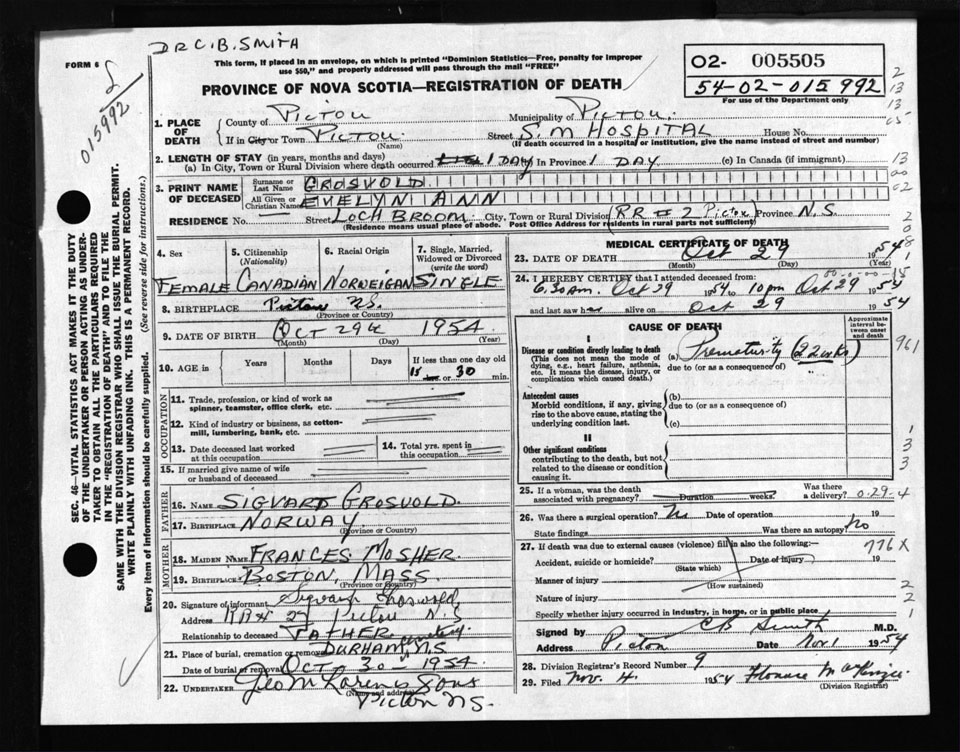 DR C. B. SMITH
FORM 6
This form, if placed in an envelope, on which is printed "Dominion Statistics—Free, penalty for improper
use $50," and properly addressed will pass through the mail "FREE"
PROVINCE OF NOVA SCOTIA—REGISTRATION OF DEATH
02- 005505
54-02-015992
For use of the Department only
015992
1. PLACE OF DEATH
County of PICTOU Municipality of PICTOU
If in City or Town PICTOU. (Name) Street S. M HOSPITAL House No.
(If death occurred in a hospital or institution, give the name instead of street and number)
2. LENGTH OF STAY (in years, months and days)
(a) In City, Town or Rural Division where death occurred 1 DAY (b) In Province 1 DAY (c) In Canada (if immigrant)
3. PRINT NAME OF DECEASED
Surname or Last Name GROSVOLD
All Given or Christian Names EVELYN ANN
RESIDENCE No. Street LOCH BROOM City, Town or Rural Division (RR #2 Pictou) Province N.S.
(Residence means usual place of abode. Post Office Address for residents in rural parts not sufficient)
4. Sex FEMALE
5. Citizenship (Nationality) CANADIAN
6. Racial Origin NORWEIGAN
7. Single, Married, Widowed or Divorced (write the word) SINGLE
8. BIRTHPLACE Pictou N.S.
(Province or Country)
9. DATE OF BIRTH Oct 29th 1954
(Month) (Day) (Year)
10. AGE in Years Months Days If less than one day old
15 hrs. or 30 min.
OCCUPATION
11. Trade, profession, or kind of work as spinner, teamster, office clerk, etc.
12. Kind of industry or business, as cotton-mill, lumbering, bank, etc.
13. Date deceased last worked at this occupation
14. Total yrs. spent in this occupation
15. If married give name of wife or husband of deceased
FATHER
16. NAME SIGVART GROSVOLD
17. BIRTHPLACE NORWAY
(Province or Country)
MOTHER
18. MAIDEN NAME FRANCES MOSHER.
19. BIRTHPLACE BOSTON, MASS
(Province or Country)
20. Signature of informant Sigvart Grosvold
Address RR# 2 Pictou N.S
Relationship to deceased FATHER
21. Place of burial, cremation or removal DURHAM, N.S cemetery
Date of burial or removal OCT 30 - 1954
22. UNDERTAKER Geo M Sons
(Name and address)
Pictou N.S.
MEDICAL CERTIFICATE OF DEATH
23. DATE OF DEATH Oct 29 1954
(Month) (Day) (Year)
24. I HEREBY CERTIFY that I attended deceased from:
6.30 am. Oct 29 1954 to 10 pm Oct 29 1954
and last saw her alive on Oct 29 1954
CAUSE OF DEATH
Approximate interval between onset and death
I
Disease or condition directly leading to death
(This does not mean the mode of dying, e.g., heart failure, asthenia, etc. It means the disease, injury, or complication which caused death.
(a) Prematurity (22 wks)
due to (or as a consequence of)
Antecedent causes
Morbid conditions, if any, giving rise to the above cause, stating the underlying condition last.
(b)
due to (or as a consequence of)
(c)
II
Other significant conditions
contributing to the death, but not related to the disease or condition causing it.
25. If a woman, was the death associated with pregnancy? Duration weeks. Was there a delivery? 0-29-4
26. Was there a surgical operation? No Date of operation 19
State findings Was there an autopsy? No
27. If death was due to external causes (violence) fill in also the following:—
776X
Accident, suicide or homicide? (State which) Date of injury 19
Manner of injury (How sustained)
Nature of injury
Specify whether injury occurred in industry, in home, or in public place
Signed by CB Smith M.D.
Address Pictou Date Nov 1 1954
28. Division Registrar's Record Number 9
29. Filed Nov. 4 1954 MacKenzie
(Division Registrar)
SEC. 46—VITAL STATISTICS ACT MAKES IT THE DUTY
OF THE UNDERTAKER OR PERSON ACTING AS UNDER-
TAKER TO OBTAIN ALL THE PARTICULARS REQUIRED
IN THE "REGISTRATION OF DEATH" AND TO FILE THE
SAME WITH THE DIVISION REGISTRAR WHO SHALL ISSUE THE BURIAL PERMIT.
WRITE PLAINLY WITH UNFADING INK. THIS IS A PERMANENT RECORD.
Every item of information should be carefully supplied. (See reverse side for instructions.)